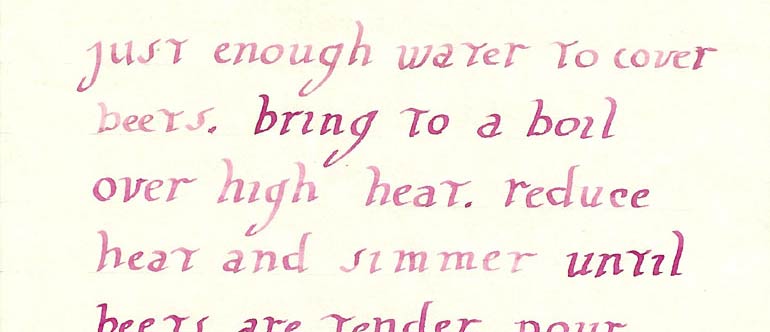 just enough water to cover
beets. bring to a boil
over high heat. reduce
heat and simmer until
beets are tender pour